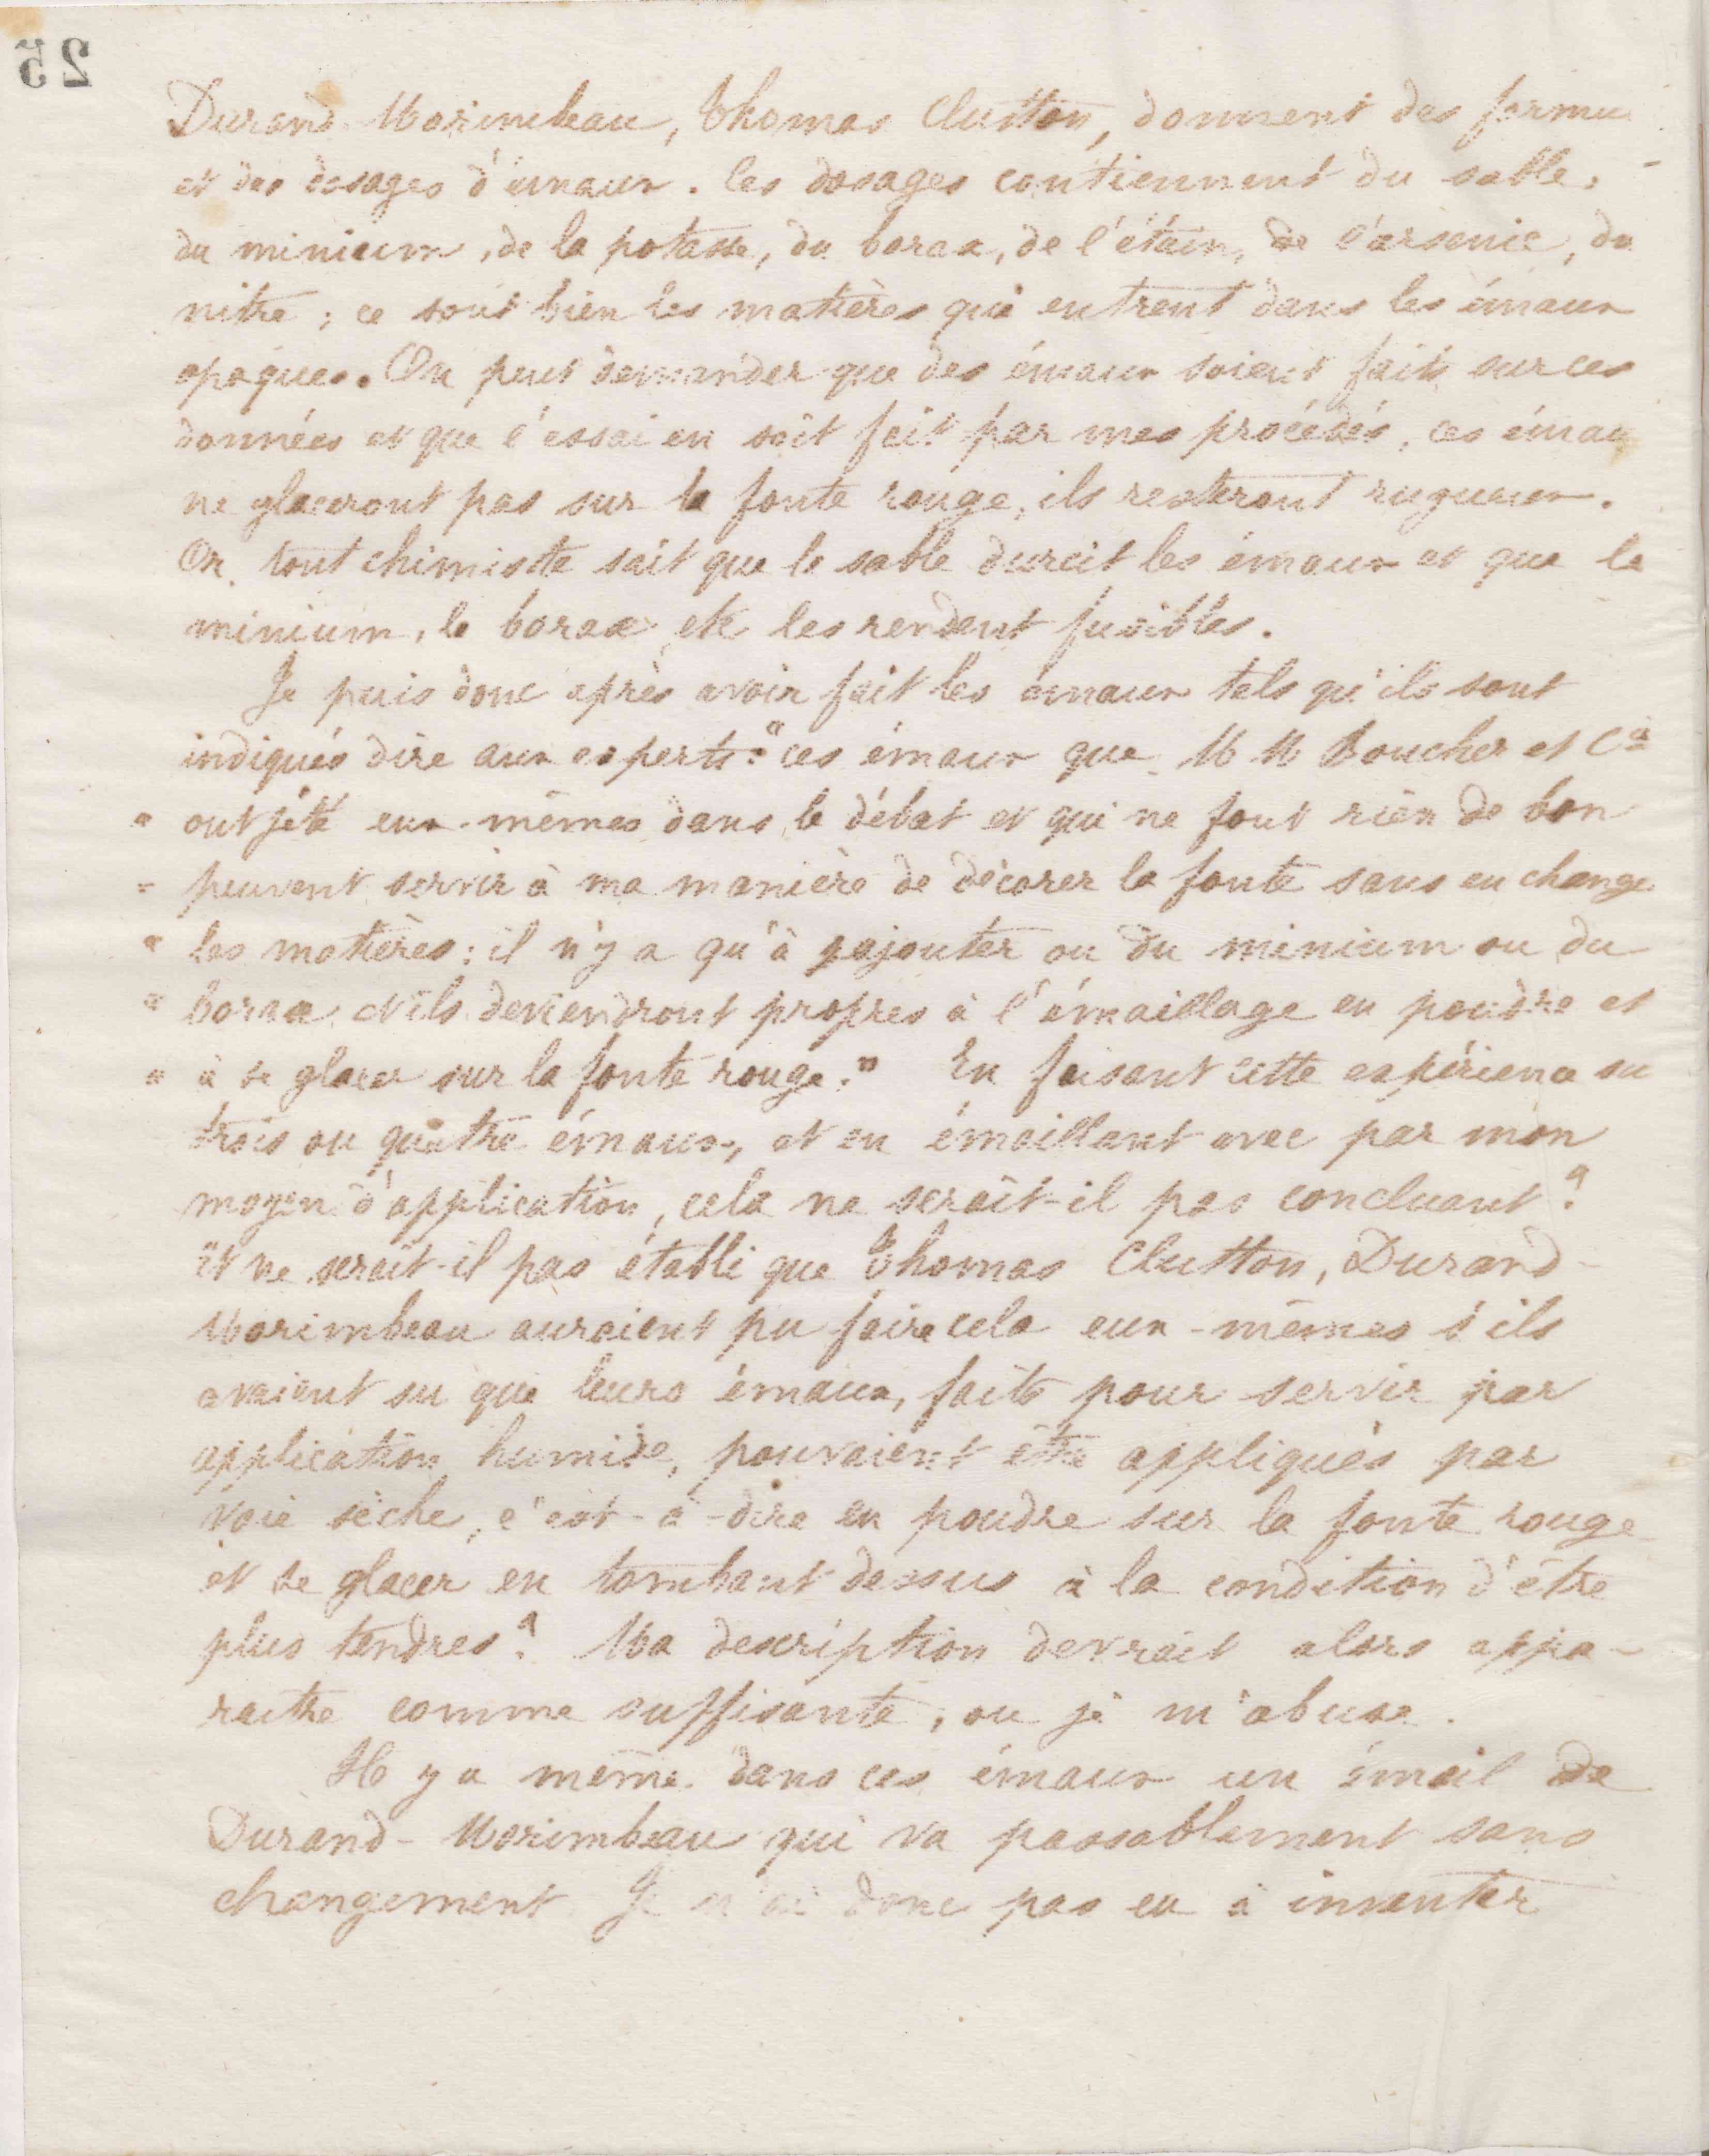 25
Durand-Morimbeau, Thomas Clutton, donnent des formu
et des dosages d'émaux. les dosages contiennent du sable,
du minium, de la potasse, du borax, de l'étain, de l'arsenic, du
nitre ; ce sont bien les matières qui entrent dans les émaux
opaques. On peut demander que des émaux soient faits sur ces
données et que l'essai en soit fait par mes procédés, ces émau
ne glaceront pas sur la fonte rouge, ils resteront rugueux.
Or, tout chimiste sait que le sable durcit les émaux et que le
minium, le borax, etc les rendent fusibles.
Je puis donc après avoir fait les émaux tels qu'ils sont
indiqués dire aux experts : "ces émaux que M M Boucher et Cie
" ont jeté eux-mêmes dans le débat et qui ne font rien de bon
" peuvent servir à ma manière de décorer la fonte sans en change
" les matières : il n'y a qu'à y ajouter ou du minium ou du
" borax et ils deviendront propres à l'émaillage en poudre et
" à se glacer sur la fonte rouge." En faisant cette expérience su
trois ou quatre émaux, et en émaillant avec par mon
moyen d'application, cela ne serait-il pas concluant ?
Et ne serait-il pas établi que Thomas Clutton, Durand-
Morimbeau auraient pu faire cela eux-mêmes s'ils
avaient su que leurs émaux, faits pour servir par
application humide, pouvaient être appliqués par
voie sèche, c'est-à-dire en poudre sur la fonte rouge
et se glacer en tombant dessus à la condition d'être
plus tendres ? Ma description devrait alors appa-
raître comme suffisante, ou je m'abuse.
Il y a même dans ces émaux un émail de
Durand-Morimbeau qui va passablement sans
changement Je n'ai donc pas eu à inventer